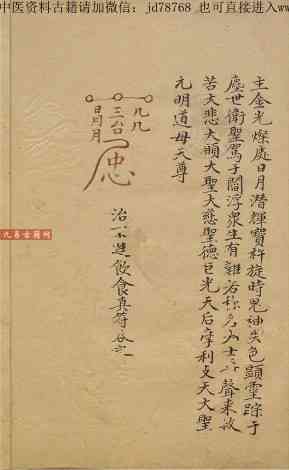 中医资料古籍请加微信：jd78768 也可直接进入ww
主金光燦處日月潛輝寶杵旋時鬼神失色顯靈踪于
塵世衛聖駕于閻浮衆生有難若称名大士尋聲来救
苦大悲大願大聖大慈聖德巨光天后摩利支天大聖
元明道母天尊
三台
日月
治不進飲食真符
九易古籍网